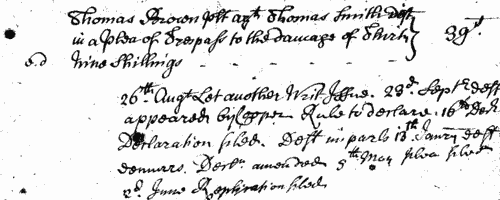 Thomas Brown plt agt Thomas Smith Deft
in a Plea of Trespass to the Damage of Thirty } 39s.
e.d nine Shillings - - - -
26th. Augt Let another Writ Issue. 23d. Septr deft
appeared by Copper Rule to declare. 16th Decr.
Declaration filed. Deft imparls 13th Janry deft
demurrs. Decln amended 5th May plea filed
2d. June Replication filed